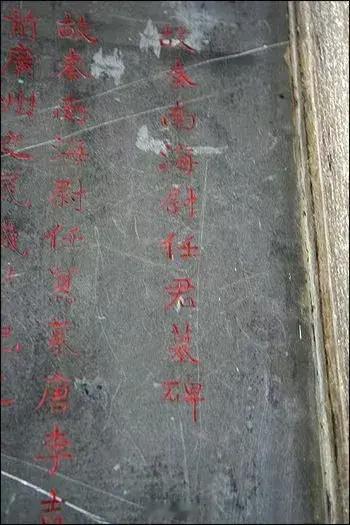 故秦南海尉任君墓碑
故秦南海尉任嚣墓唐李吉
前廣州